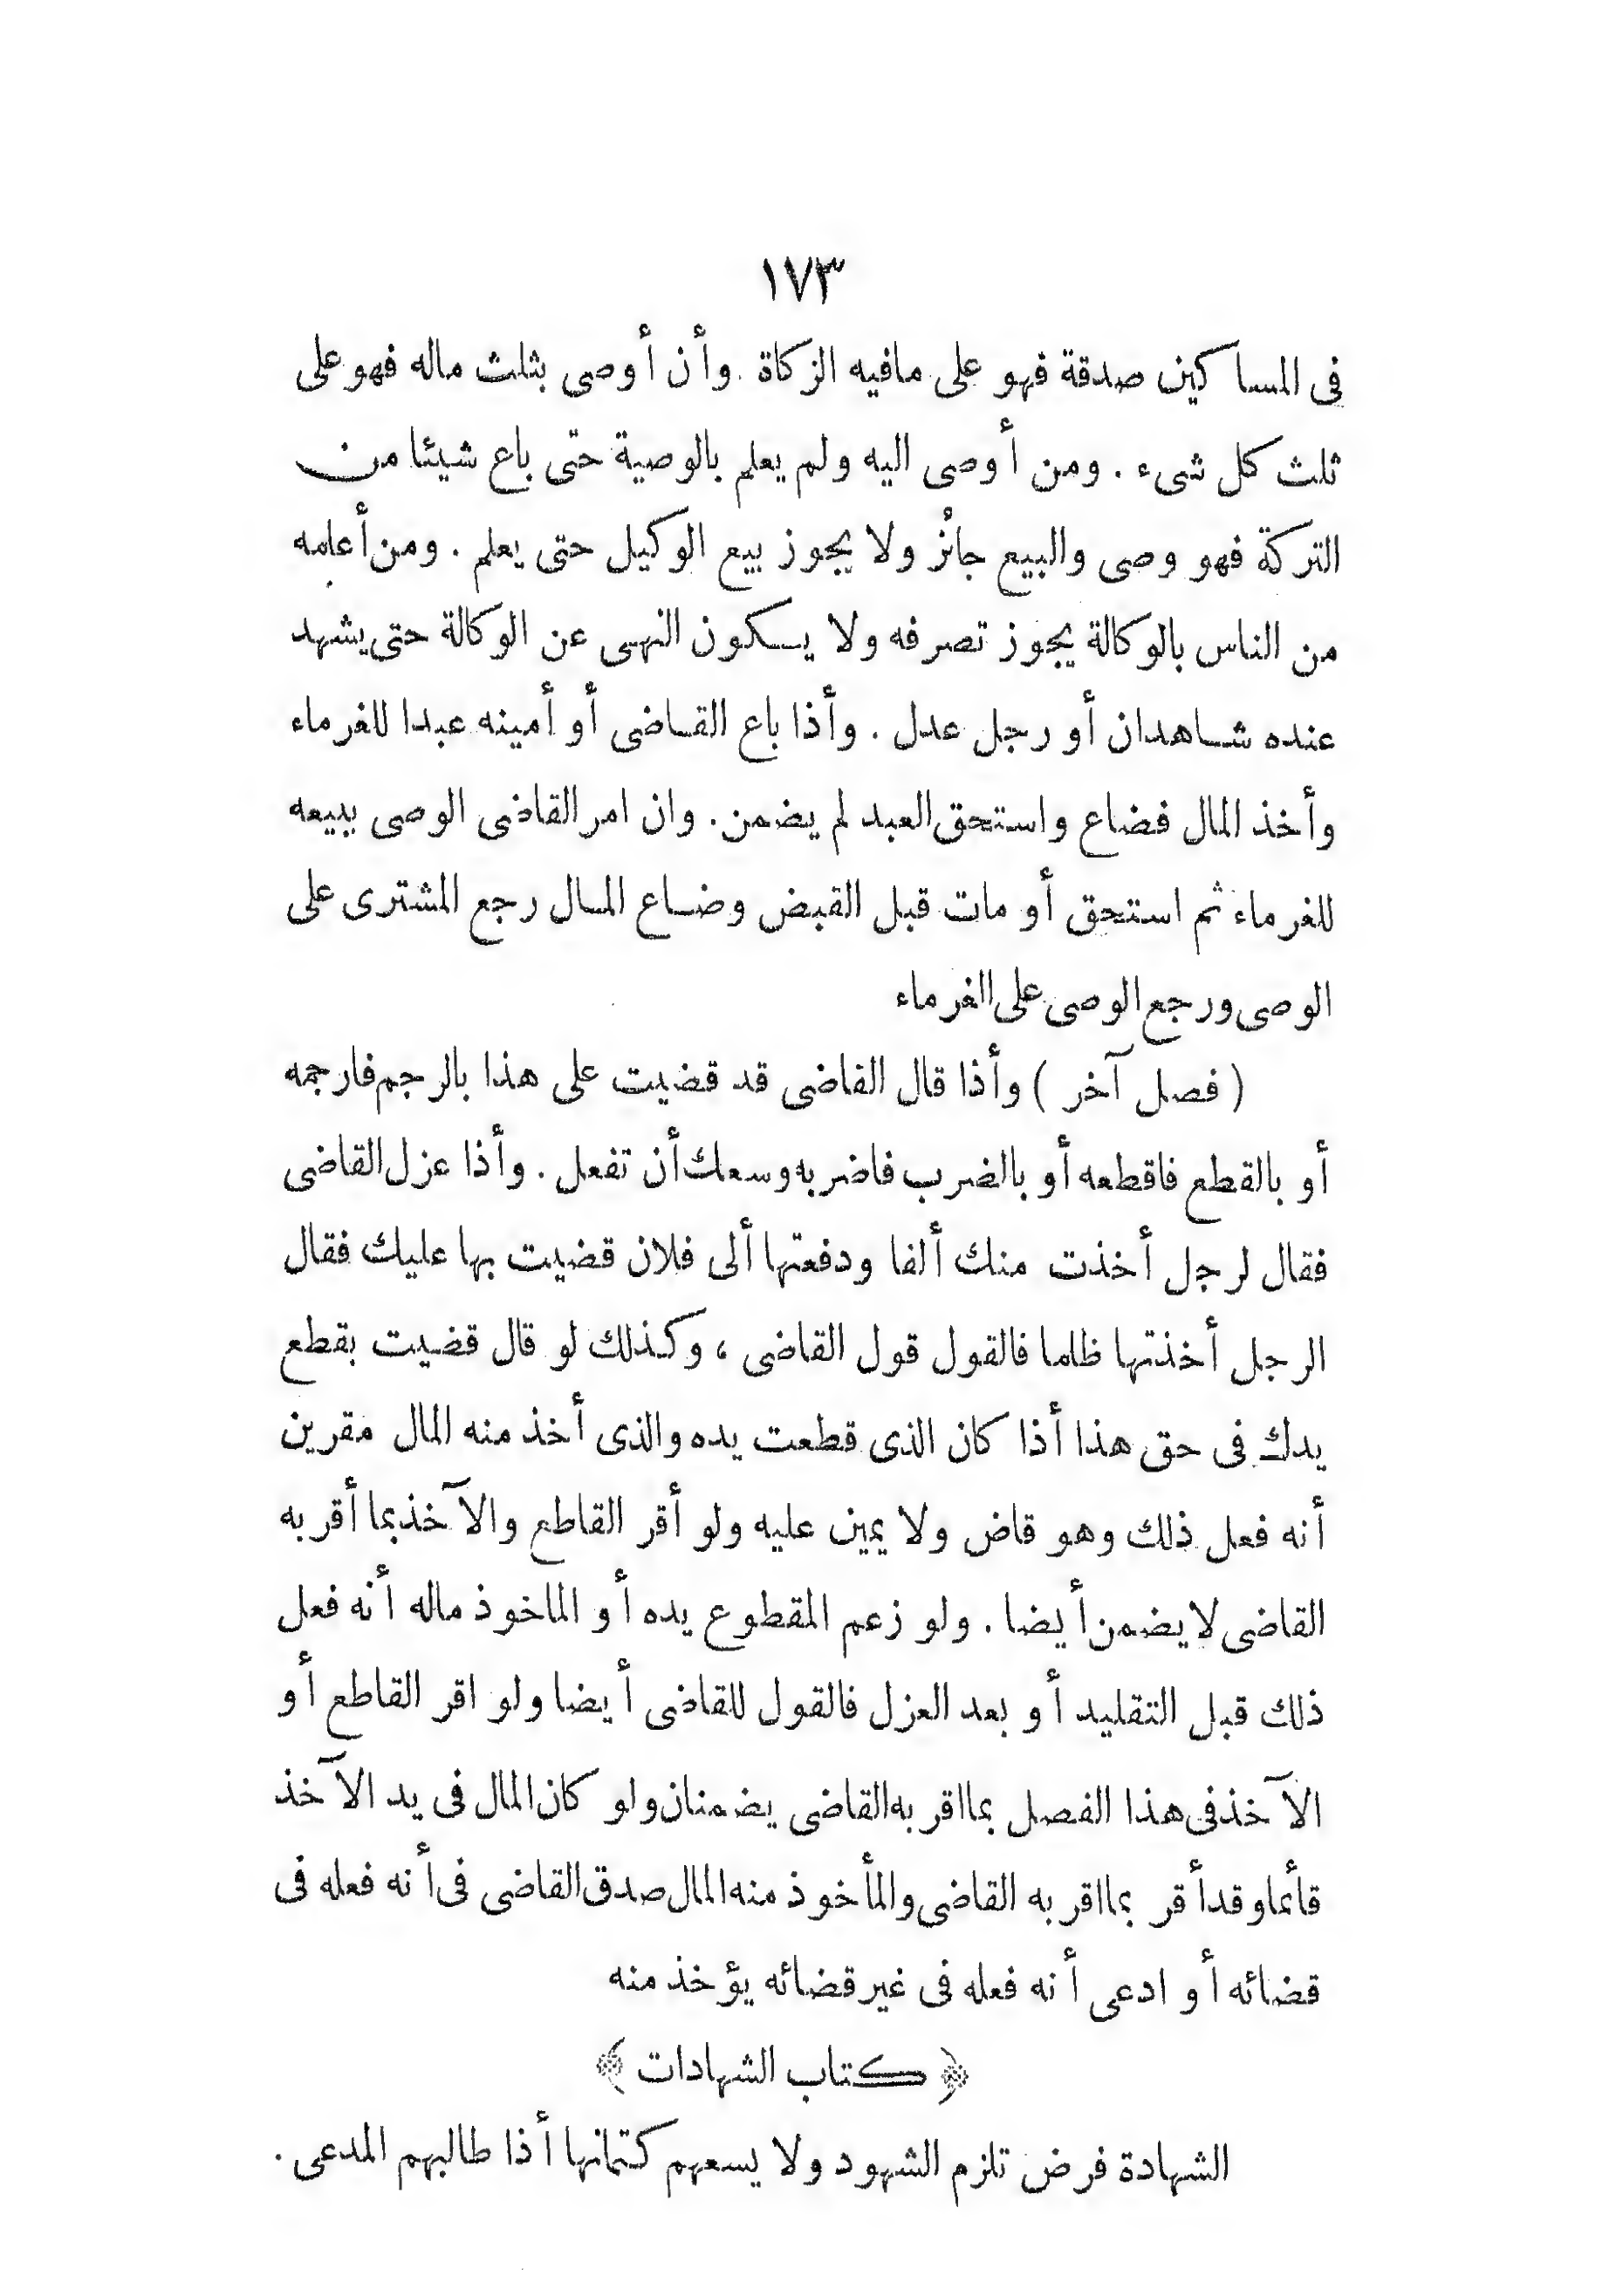 ١٧٣
فى المساكين صدقة فهو على مافيه الزكاة . وأن أوصى بثلث ماله فهو على
ثلث كل شىء . ومن أوصى اليه ولم يعلم بالوصية حتى باع شيئا من
التركة فهو وصى والبيع جائز ولا يجوز بيع الوكيل حتى يعلم . ومن أعلمه
من الناس بالوكالة يجوز تصرفه ولا يكون النهى عن الوكالة حتى يشهد
عنده شاهدان أو رجل عدل . وأذا باع القاضى أو أمينه عبدا للغرماء
وأخذ المال فضاع واستحق العبد لم يضمن . وان امر القاضى الوصى ببيعه
للغرماء ثم استحق أو مات قبل القبض وضاع المال رجع المشترى على
الوصى ورجع الوصى على الغرماء
( فصل آخر ) وأذا قال القاضى قد قضيت على هذا بالرجم فارجمه
أو بالقطع فاقطعه أو بالضرب فاضربه وسعك أن تفعل . وأذا عزل القاضى
فقال لرجل أخذت منك ألفا ودفعتها ألى فلان قضيت بها عليك فقال
الرجل أخذتها ظلما فالقول قول القاضى ، وكذلك لو قال قضيت بقطع
يدك فى حق هذا أذا كان الذى قطعت يده والذى أخذ منه المال مقرين
أنه فعل ذلك وهو قاض ولا يمين عليه ولو أقر القاطع والآخذ بما أقر به
القاضى لا يضمن أيضا . ولو زعم المقطوع يده أو الماخوذ ماله أنه فعل
ذلك قبل التقليد أو بعد العزل فالقول للقاضى أيضا ولو اقر القاطع أو
الآخذ فى هذا الفصل بما اقر به القاضى يضمنان ولو كان المال فى يد الآخذ
قأئما وقد أقر بما اقر به القاضى والمأخوذ منه المال صدق القاضى فى أنه فعله فى
قضائه أو ادعى أنه فعله فى غير قضائه يؤخذ منه
﴿ كتاب الشهادات ﴾
الشهادة فرض تلزم الشهود ولا يسعهم كتمانها أذا طالبهم المدعى .